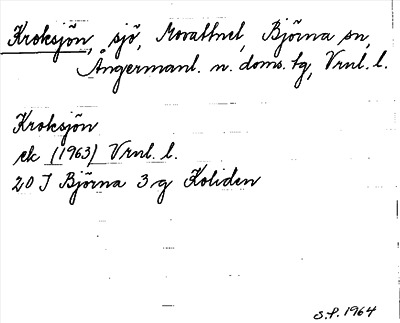 Kroksjön, sjö, Movattnet, Björna sn,
Ångermanl. n. doms. tg, Vrnl. l.
Kroksjön
ek (1963) Vrnl. l.
20 I Björna 3 g Koliden
S.P. 1964